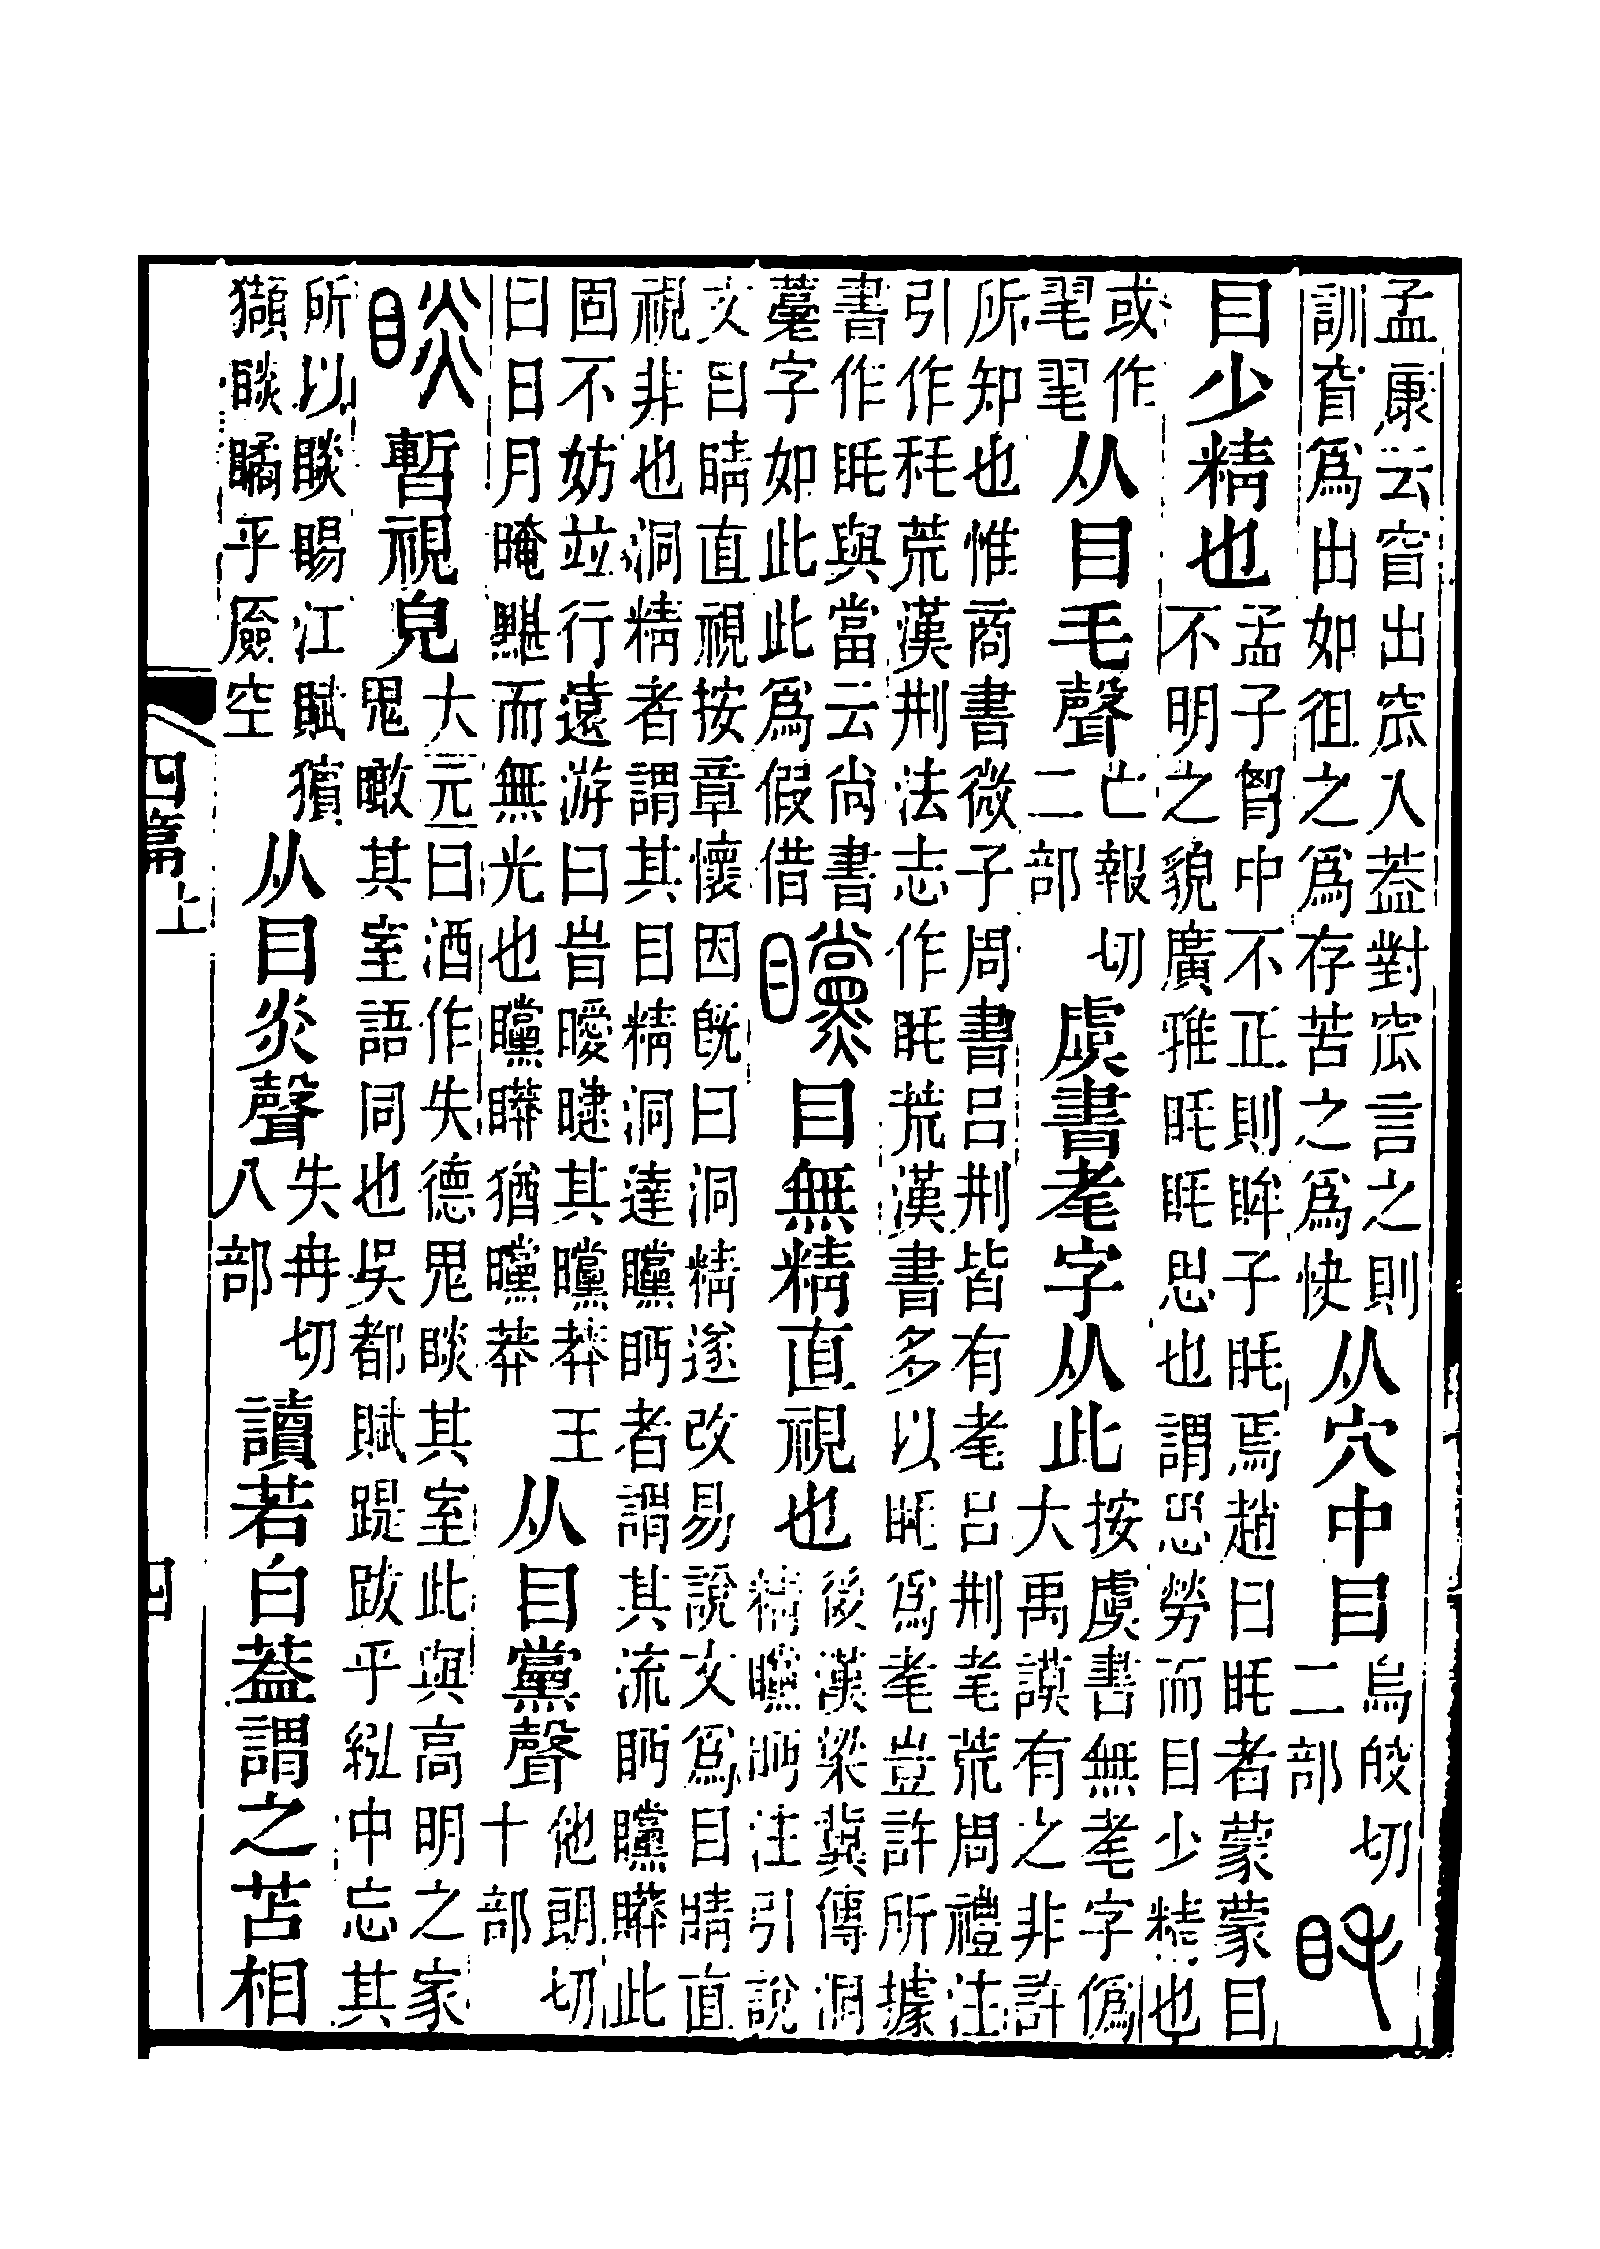 孟康云窅出窊入葢對窊言之則
訓窅爲出如徂之爲存苦之爲快
从穴中目
烏皎切
二部
眊
目少精也
孟子胷中不正則眸子眊焉趙曰眊者蒙蒙目
不明之貌廣雅眊眊思也謂恐勞而目少精也
或作
毣毣
从目毛聲
亡報切
二部
虞書耄字从此
按虞書無耄字僞
大禹謨有之非許
所知也惟商書微子周書呂荆皆有耄呂荆耄荒周禮注
引作秏荒漢荆法志作眊荒漢書多以眊爲耄豈許所據
書作眊與當云尙書
𦽡字如此此爲假借
矘
目無精直視也
後漢梁冀傳洞
精矘眄注引說
文目睛直視按章懷因旣曰洞精遂改易說文爲目睛直
視非也洞精者謂其目精洞達矘眄者謂其流眄矘䁳此
固不妨並行遠游曰旹曖曃其曭莽王
曰日月晻黮而無光也矘䁳猶曭莽
从目黨聲
他朗切
十部
睒
暫視皃
大元曰酒作失德鬼睒其室此與高明之家
鬼瞰其室語同也吳都賦踶跋乎紭中忘其
所以睒睗江賦獱
獺睒瞲乎厱空
从目炎聲
失冉切
八部
讀若白葢謂之苫相
四篇上
四